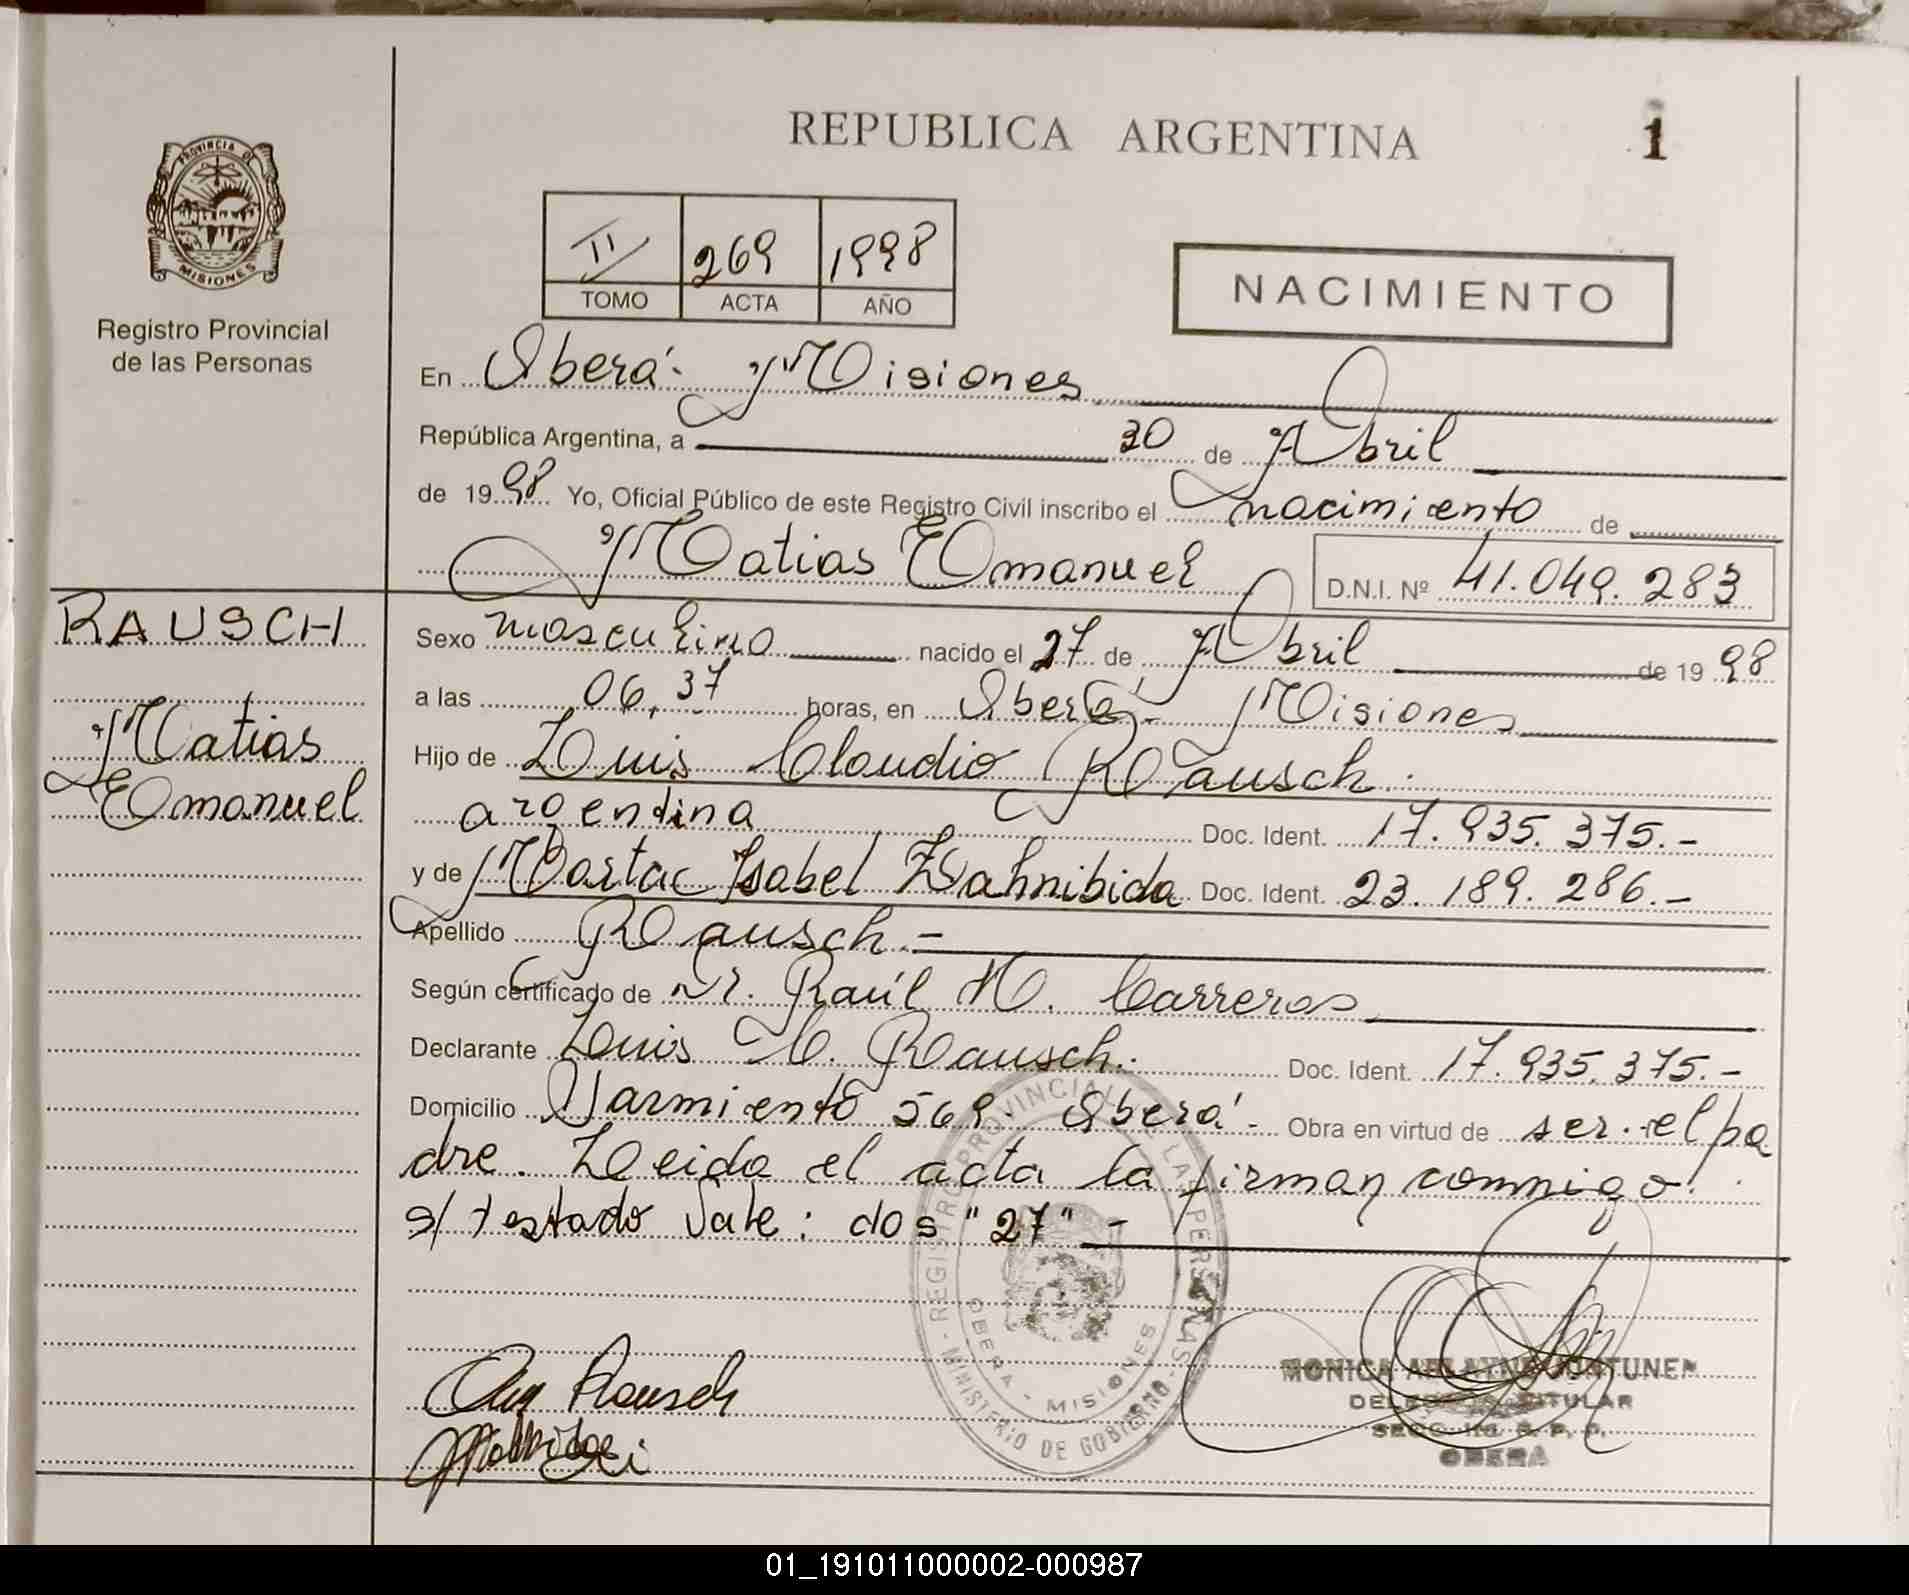 REPUBLICA ARGENTINA
1
PROVINCIA DE
MISIONES
Registro Provincial
de las Personas
II 269 1998
TOMO ACTA AÑO
NACIMIENTO
En Oberá. Misiones
República Argentina, a 30 de Abril
de 1998 Yo, Oficial Público de este Registro Civil inscribo el nacimiento de
Matias Emanuel D.N.I. Nº 41.049.283
RAUSCH
Matias
Emanuel
Sexo masculino nacido el 27 de Abril de 1998
a las 06,37 horas, en Oberá, - Misiones
Hijo de Luis Claudio Rausch.
argentina Doc. Ident. 17.935.375.-
y de Marta Isabel Doc. Ident. 23.189.286.-
Apellido Rausch.-
Según certificado de Dr. Raúl H. Carreros
Declarante Luis C. Rausch. Doc. Ident. 17.935.375.-
Domicilio Sarmiento 569. Oberá. - Obra en virtud de ser el pa
dre. Leida el acta la firman conmigo.
s/testado Vale: dos "27" -
REGISTRO PROVINCIAL DE LAS PERSONAS
MINISTERIO DE GOBIERNO
OBERA - MISIONES
Rausch
MONICA
TITULAR
OBERA
01_191011000002-000987